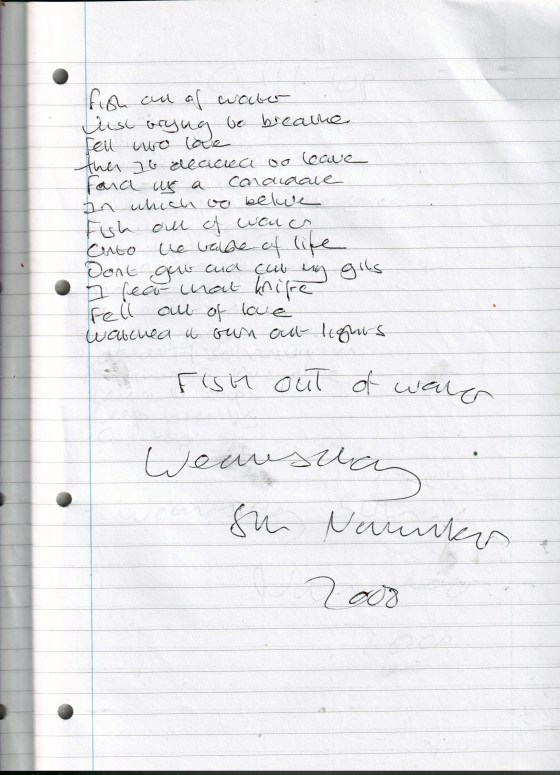 Fish out of water
Just trying to breathe
Fell into love
then It decided to leave
Found us a candidate
In which to believe
Fish out of water
Onto the table of life
Dont gut and cut my gils
I fear that knife
Fell out of love
Watched it turn out lights
FISH OUT of water
Wednesday
5th November
2008